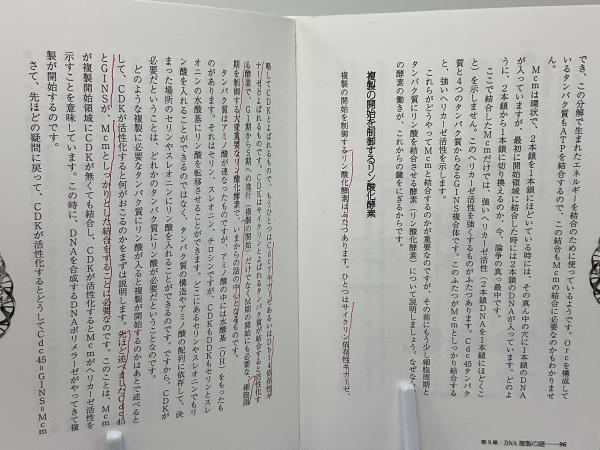 でき、この分解で生まれたエネルギーを結合のために使っているようです。Orcを構成して
いるタンパク質もATPを結合するので、この結合もMcmの結合に必要なのかもわかりませ
ん。
Mcmは環状で、2本鎖を1本鎖にほどいている時には、その真ん中の穴に1本鎖のDNA
が入っていますが、最初に開始領域に結合した時には2本鎖のDNAが入っています。どのよ
うに、2本鎖から1本鎖に切り換えるのか、今、論争の真っ最中です。
ここで結合したMcmだけでは、強いヘリカーゼ活性(2本鎖DNAを1本鎖にほどくこ
と)を示しません。このヘリカーゼ活性を強くするものがふたつあります。Cdc45タンパク
質と4つのタンパク質からなるGINS複合体です。このふたつがMcmとしっかり結合する
と、強いヘリカーゼ活性を示します。
これらがどうやってMcmと結合するのかが重要なのですが、その前にもう少し細胞周期と
タンパク質にリン酸を結合させる酵素(リン酸化酵素)について説明しましょう。なぜなら、こ
の酵素の働きが、これからの鍵をにぎるからです。
複製の開始を制御するリン酸化酵素
複製の開始を制御するリン酸化酵素はふたつあります。ひとつはサイクリン依存性キナーゼ、
第9章 DNA複製の謎——96
略してCDKとよばれるもので、もうひとつはCdc7キナーゼあるいはDbf4依存性キ
ナーゼとよばれるものです。CDKはサイクリンとよばれるタンパク質が結合すると活性化す
る酵素で、G1期からS期への進行(複製の開始)だけでなくM期の開始にも必要な、細胞周
期を制御する大変重要なリン酸化酵素で、いまからの話の中心となるものです。
タンパク質はアミノ酸が連なったものですが、アミノ酸の中には水酸基(OH)をもったも
のがあります。それはセリン、スレオニン、チロシンですが、CDKもDDKもセリンとスレ
オニンの水酸基にリン酸を転移させることができます。どこにあるセリンやスレオニンでもリ
ン酸を入れることができるのではなく、タンパク質の構造やアミノ酸の配列に依存して、決
まった場所のセリンやスレオニンにリン酸を入れることができるのです。ですから、CDKが
必要だということは、どれかのタンパク質にリン酸が必要だということなのです。
どのような複製に必要なタンパク質にリン酸が入ると複製が開始するのかはあとで述べると
して、CDKが活性化すると何がおこるのかをまずは説明します。先ほど述べましたCdc45
とGINSが、Mcmとしっかりとした結合をすることに必要なのです。このことは、Mcm
が複製開始領域にCDKが無くても結合し、CDKが活性化するとMcmがヘリカーゼ活性を
示すことを意味しています。この時に、DNAを合成するDNAポリメラーゼがやってきて複
製が開始するのです。
さて、先ほどの疑問に戻って、CDKが活性化するとどうしてCdc45=GINS=Mcm